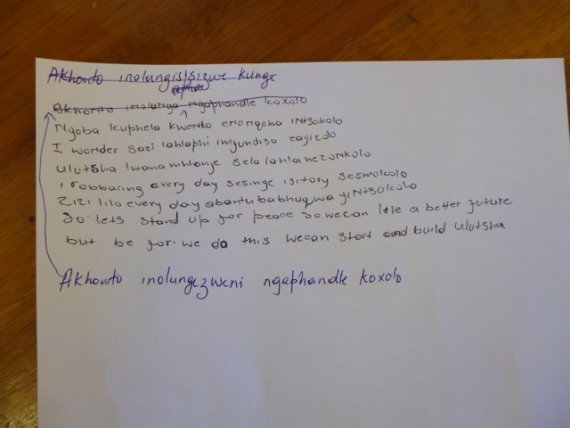 Akhonto inolungis|sizwe kunge
Akhonto inolunga ngaphandle koxolo
Ngoba kuphela kwento enonqoba iNtsokolo
I wonder sael lahlaphi imfundiso zayizolo
ulutsha lwanamhlanje selalahla nezonkolo
i robbaring every day sesinge isitory sesmokolo
Zizi lilo every day abantu babhuqwa yiNtsokolo
So' lets stand up for peace so wecan live a better future
but be for: we do this wecan start and build ulutsha
Akhonto inolungezweni ngaphandle koxolo